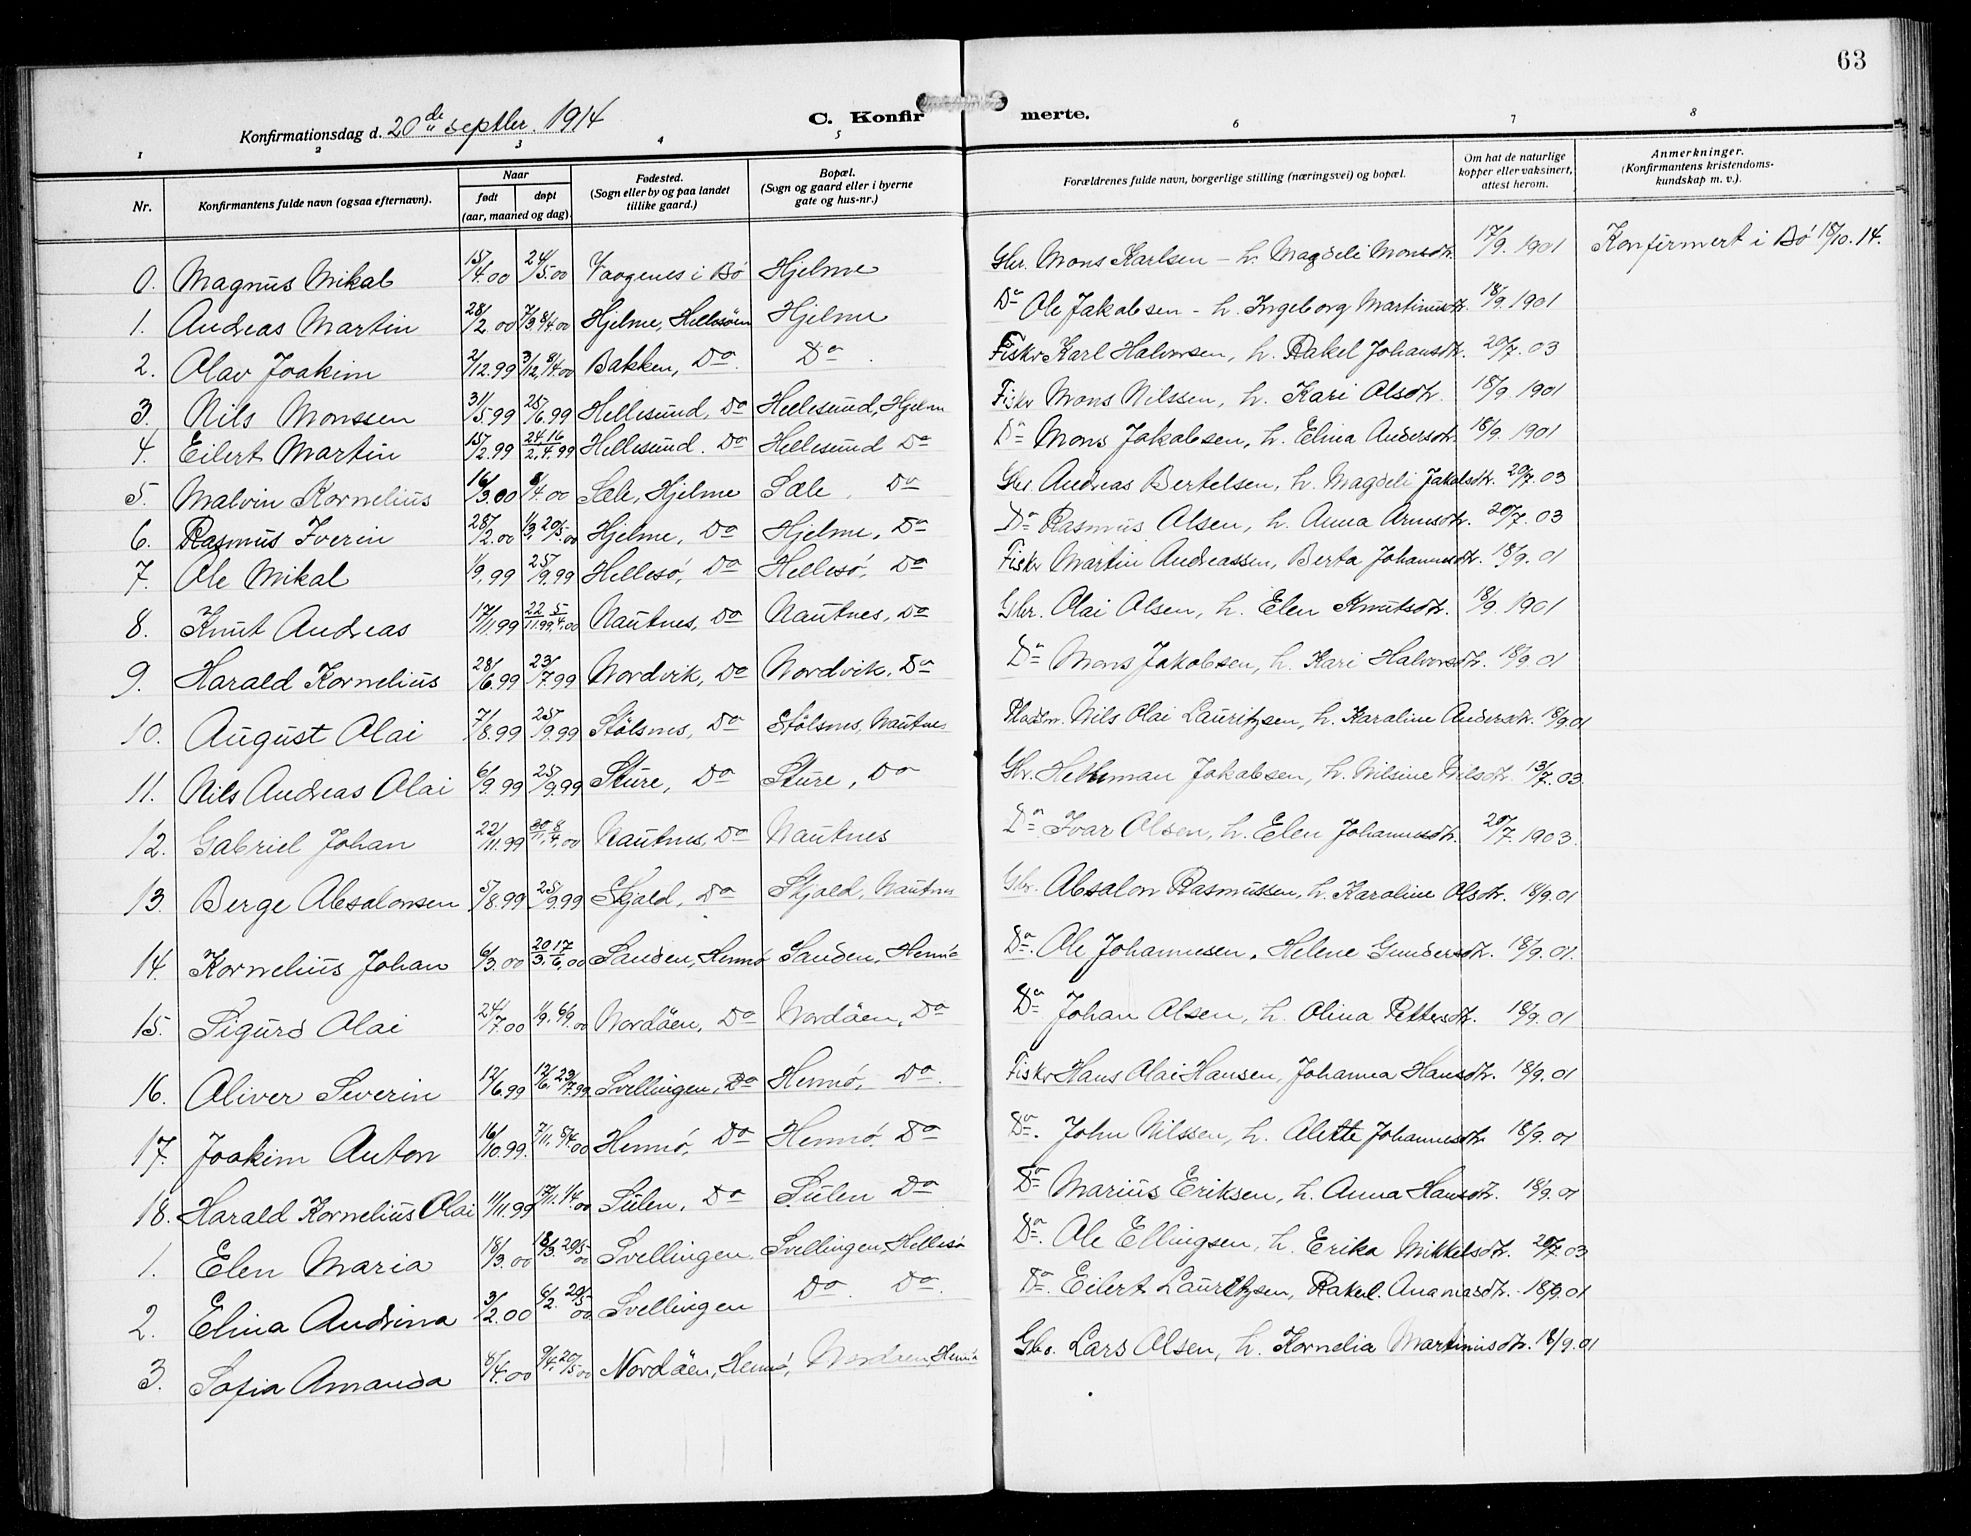 63
Konfirmationsdag d. 20de septbr. 1914
C. Konfirmerte.
1 2 3 4 5 6 7 8
Nr. Konfirmantens fulde navn (ogsaa efternavn). Naar født døpt (aar, maaned og dag). Fødested. (Sogn eller by og paa landet tillike gaard.) Bopæl. (Sogn og gaard eller i byerne gate og hus-nr.) Forældrenes fulde navn, borgerlige stilling (næringsvei) og bopæl. Om hat de naturlige kopper eller vaksinert, attest herom. Anmerkninger. (Konfirmantens kristendomskundskap m. v.).
0. Magnus Mikal 15/4.00 24/5.00 Vaagenes i Bö Hjelme Gbr. Mons Karlsen - h. Magdeli Monsdtr. 17/9. 1901 Konfirmert i Bö 18/10.14.
1. Andreas Martin 28/2.00 7/3 8/4.00 Hjelme, Hellesöen Hjelme Do Ole Jakobsen - h. Ingeborg Martinusdtr. 18/9.1901
2. Olav Joakim 2/12.99 3/12, 8/4.00 Bakken, Do. Do. Fiskr Karl Halvorsen, h. Rakel Johansdtr. 20/7.03
3. Nils Monssen 31/5.99 25/6.99 Hellesund, Do Hellesund, Hjelm Fiskr Mons Nilssen, h. Kari Olsdtr. 18/9.1901
4. Eilert Martin 15/2.99 24/2. 16/4.99 Hellesund. Do Hellesund Do Do Mons Jakobsen, h. Elina Andersdtr. 18/9.1901
5. Malvin Kornelius 16/3.00 8/4.00 Sæle, Hjelme Sæle, Do Gbr. Andreas Bertelsen, h. Magdeli Jakobsdtr. 20/7.03
6. Rasmus Iverin 28/2.00 20/5.00 Hjelme, Do Hjelme, Do Do Rasmus Olsen, h. Anna Arnesdtr. 20/7.03
7. Ole Mikal 1/9.99 25/9.99 Hellesö, Do Hellesö, Do Fiskr Martin Andreassen, Berta Johannesdtr. 18/9.01
8. Knut Andreas 17/11.99 22/11.99 5/4.00 Nautnes, Do Nautnes, Do Gbr. Olai Olsen, h. Elen Knutsdtr. 18/9.1901
9. Harald Kornelius 28/6.99 23/7.99 Nordvik, Do Nordvik, Do Do Mons Jakobsen, h. Kari Halvorsdtr. 18/9.01
10. August Olai 7/8.99 25/9.99 Stölsnes, Do Stölsnes, Nautnes Pladsm. Nils Olai Lauritzsen, h. Karoline Andersdtr. 18/9.01
11. Nils Andreas Olai 6/9.99 25/9.99 Sture, Do Sture, Do Gbr. Helleman Jakobsen, h. Nilsine Nilsdtr. 13/7.03.
12. Gabriel Johan 22/11.99 30/11. 8/4.00 Nautnes, Do Nautnes Do Ivar Olsen, h. Elen Johannesdtr. 20/7.1903.
13. Berge Absalonsen 5/8.99 25/9.99 Skjold, Do Skjold, Nautnes Gbr. Absalon Rasmussen, h. Karoline Olsdtr. 18/9.01
14. Kornelius Johan 6/3.00 20/3. 17/6.00 Sanden, Hernö Sanden, Hernö Do. Ole Johannesen, Helene Gundersdtr. 18/9.01.
15. Sigurd Olai 24/7.00 1/9. 6/9.00 Nordöen, Do Nordöen, Do Do Johan Olsen, h. Olina Pettersdtr. 18/9.01
16. Oliver Severin 12/6.99 12/6. 23/7.99 Svellingen, Do Hernö, Do. Fiskr Hans Olai Hansen, Johanna Hansdtr. 18/9.01
17. Joakim Anton 16/10.99. 7/11. 8/4.00 Hernö, Do Hernö. Do Do. John Nilssen, h. Alette Johannesdtr. 18/9.01
18. Harald Kornelius Olai 11/11.99 17/11. 1/4.00 Sulen, Do Sulen Do Do Marius Eriksen, h. Anna Hansdtr. 18/9.01
1. Elen Maria 18/3.00 18/3. 20/5.00 Svellingen Svellingen, Hellesö Do. Ole Ellingsen, h. Erika Mikkelsdtr. 20/7.03
2. Elina Andrina 3/2.00 6/2. 20/5.00 Svellingen Do. Do. Do Eilert Lauritzsen, Rakel Ananiasdtr. 18/9.01
3. Sofia Amanda 8/4.00 9/4. 20/5.00 Nordöen, Hernö, Nordöen, Hernö Gbr. Lars Olsen, h. Kornelia Martinusdtr. 18/9.01